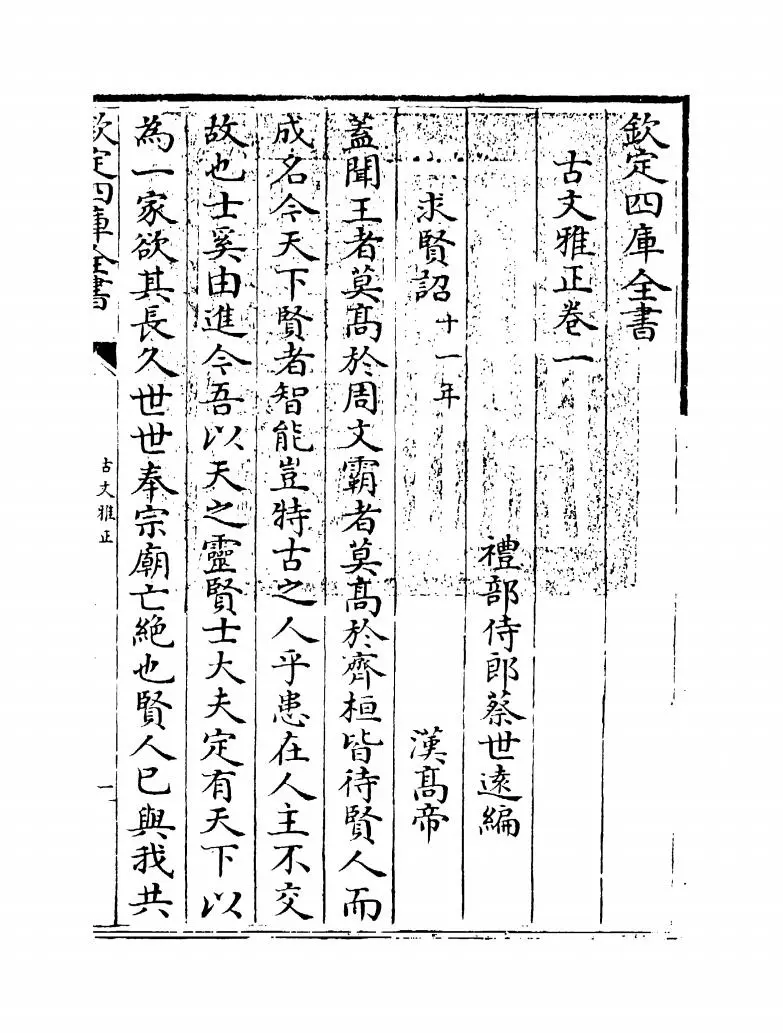 欽定四庫全書
古文雅正卷一
禮部侍郎蔡世遠編
求賢詔十一年 漢髙帝
蓋聞王者莫髙於周文霸者莫髙於齊桓皆待賢人而
成名今天下賢者智能豈特古之人乎患在人主不交
故也士奚由進今吾以天之靈賢士大夫定有天下以
為一家欲其長久世世奉宗廟亡絶也賢人已與我共
欽定四庫全書
古文雅正
一